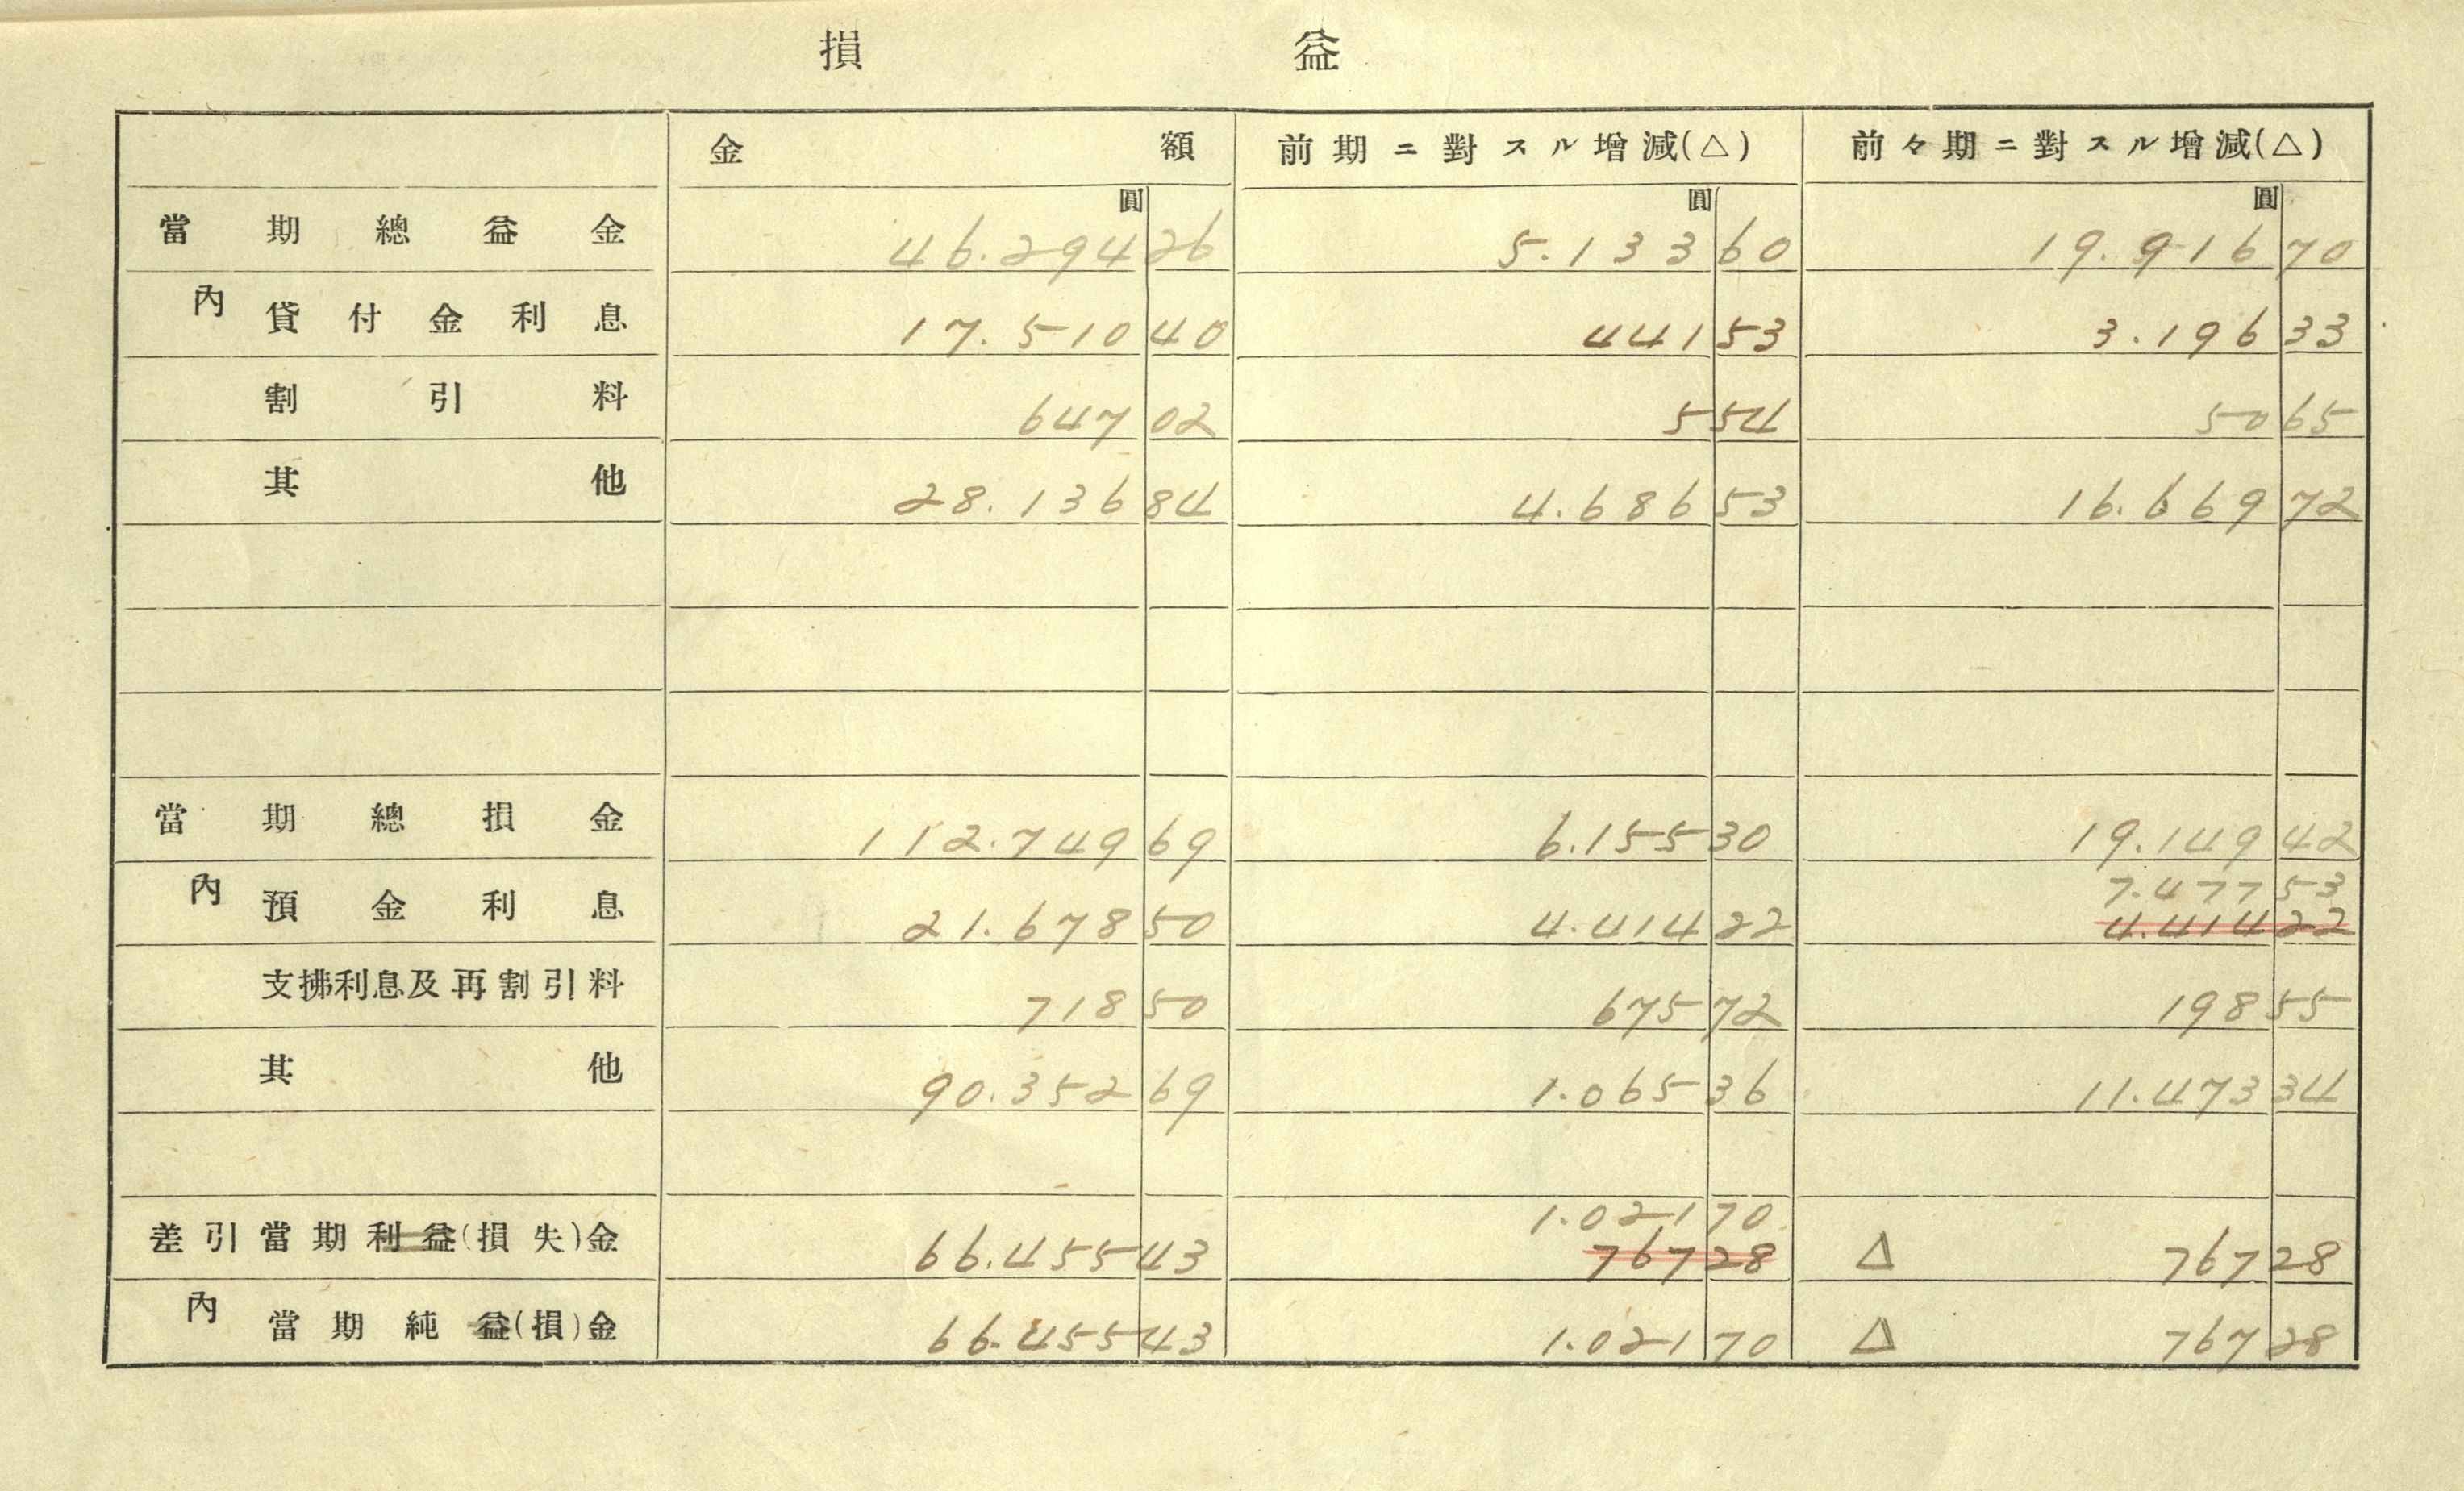 損益
金額 前期ニ對スル增減(△) 前々期ニ對スル增減(△)
圓 圓 圓
當期總益金 46.294 26 5.133 60 19.916 70
內 貸付金利息 17.510 40 441 53 3.196 33
割引料 647 02 5 54 50 65
其他 28.136 84 4.686 53 16.669 72
當期總損金 112.749 69 6.155 30 19.149 42
7.477 53
內 預金利息 21.678 50 4.414 22 4.414 22
支拂利息及再割引料 718 50 675 72 198 55
其他 90.352 69 1.065 36 11.473 34
1.021 70
差引當期利益(損失)金 66.455 43 767 28 △ 767 28
內 當期純益(損)金 66.455 43 1.021 70 △ 767 28